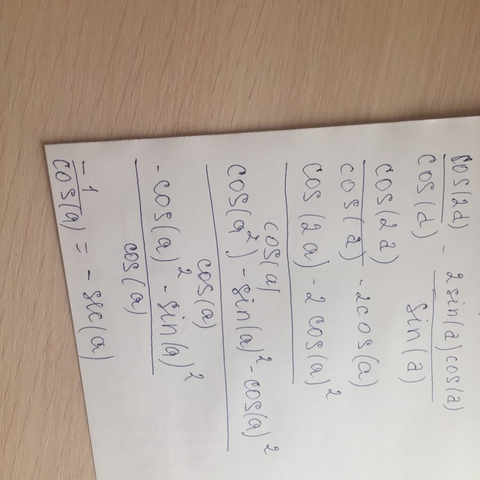 cos(2d)/cos(d) - 2sin(a)cos(a)/sin(a)
cos(2a)/cos(a) - 2cos(a)
cos(2a) - 2cos(a)²
cos(a)
cos(a²) - sin(a)² - cos(a)²
cos(a)
-cos(a)² - sin(a)²
cos(a)
-1/cos(a) = -sec(a)